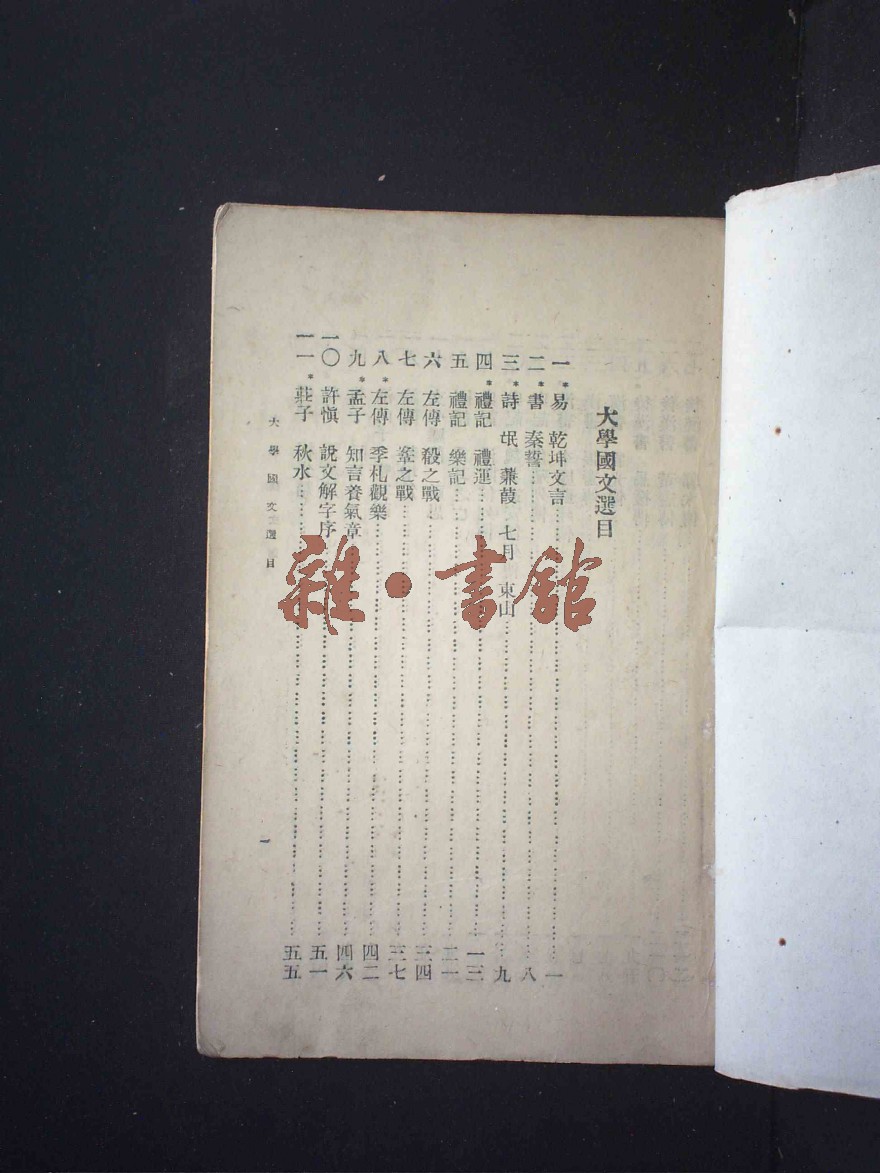 大學國文選目
一* 易 乾坤文言……一
二* 書 秦誓……八
三* 詩 氓 蒹葭 七月 東山……九
四* 禮記 禮運……一三
五 禮記 樂記……二一
六 左傳 殽之戰……三四
七 左傳 鞌之戰……三七
八* 左傳 季札觀樂……四二
九* 孟子 知言養氣章……四六
一〇 許慎 說文解字序……五一
一一* 莊子 秋水……五五
大學國文選目 一
雜·書館